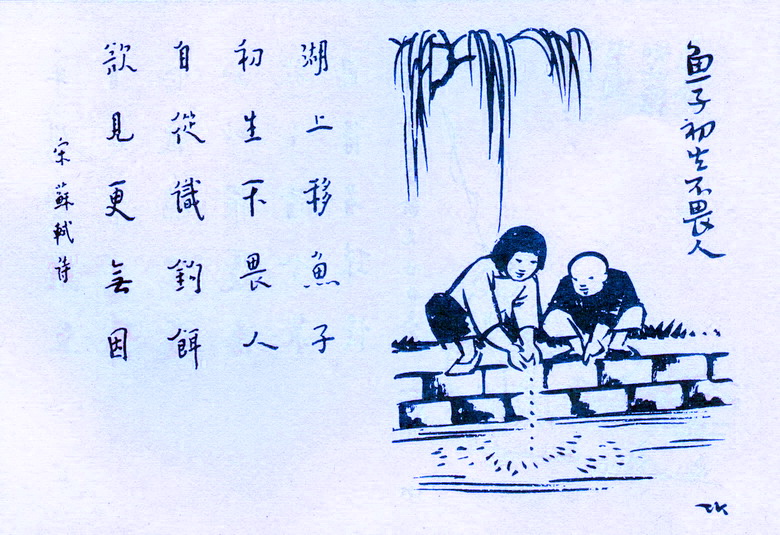 鱼子初生不畏人
湖上移魚子
初生不畏人
自從識鈎餌
欲見更無因
宋 蘇軾詩
TK